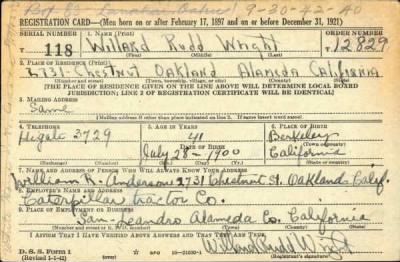 9-30-42-40
REGISTRATION CARD—(Men born on or after February 17, 1897 and on or before December 31, 1921)
SERIAL NUMBER 1. NAME (Print) ORDER NUMBER
T 118 Willard Rudd Wright T 12829
(First) (Middle) (Last)
2. PLACE OF RESIDENCE (Print)
2731 Chestnut Oakland Alameda California
(Number and street) (Town, township, village, or city) (County) (State)
[THE PLACE OF RESIDENCE GIVEN ON THE LINE ABOVE WILL DETERMINE LOCAL BOARD
JURISDICTION; LINE 2 OF REGISTRATION CERTIFICATE WILL BE IDENTICAL]
3. MAILING ADDRESS
Same
[Mailing address if other than place indicated on line 2. If same insert word same]
4. TELEPHONE 5. AGE IN YEARS 6. PLACE OF BIRTH
Higate 3729 41 Berkeley
DATE OF BIRTH (Town or county)
July 28 - 1900 California
(Exchange) (Number) (Mo.) (Day) (Yr.) (State or country)
7. NAME AND ADDRESS OF PERSON WHO WILL ALWAYS KNOW YOUR ADDRESS
William R. Anderson 2731 Chestnut St. Oakland Calif.
8. EMPLOYER'S NAME AND ADDRESS
Caterpillar Tractor Co.
9. PLACE OF EMPLOYMENT OR BUSINESS
San-Leandro Alameda Co. California
(Number and street or R. F. D. number) (Town) (County) (State)
I AFFIRM THAT I HAVE VERIFIED ABOVE ANSWERS AND THAT THEY ARE TRUE.
D. S. S. Form 1 GPO 16-21630-1 Willard Rudd Wright
(Revised 1-1-42) (over) (Registrant's signature)